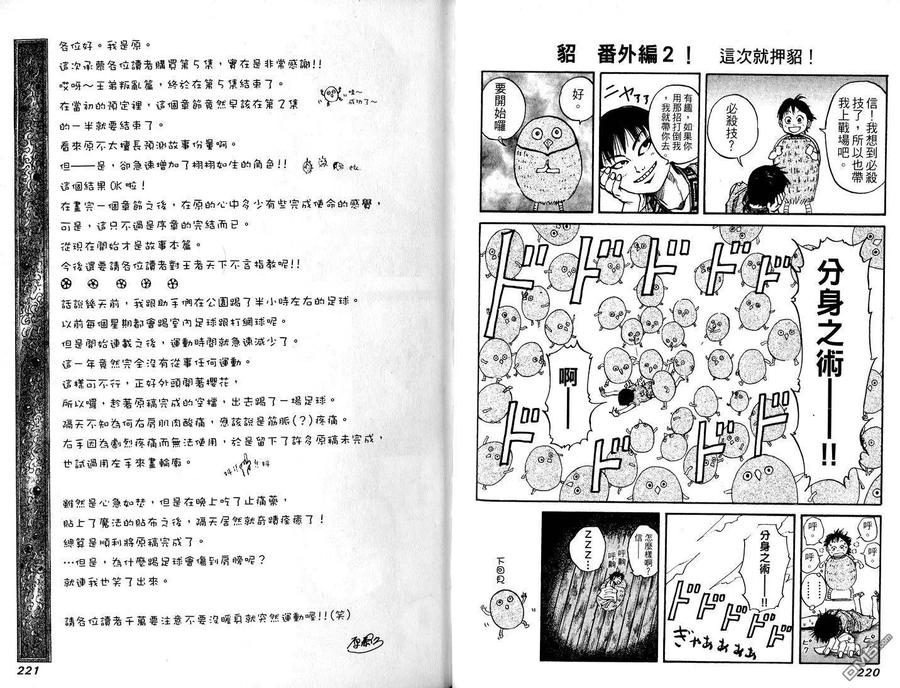 貂 番外編2! 這次就押貂!
信!我想到必殺
技了,所以也帶
我上戰場吧。
必殺技?
有趣,如果你
用那招打倒我
,我就帶你去
ニヤ了了
好。
要開始囉
分身之術——!!
啊——
ドドド
ドドド
呼…
呼…
分身之術——!!
ドドド
ぎゃああああ
怎麼樣啊?
信——
呼齁
呼齁
ZZZ…
下回見
220
各位好。我是原。
這次承蒙各位讀者購買第5集,實在是非常感謝!!
哎呀~王弟叛亂篇,終於在第5集結束了。
哇~
成功了~
在當初的預定裡,這個章節竟然早該在第2集
的一半就要結束了。
看來原不太擅長預測故事份量啊。
但——是,卻急速增加了栩栩如生的角色!!
etc.
這個結果OK啦!
在畫完一個章節之後,在原的心中多少有些完成使命的感覺,
可是,這只不過是序章的完結而已。
從現在開始才是故事本篇。
今後還要請各位讀者對王者天下不吝指教呢!!
話說幾天前,我跟助手們在公園踢了半小時左右的足球。
以前每個星期都會踢室內足球跟打網球呢。
但是開始連載之後,運動時間就急速減少了。
這一年竟然完全沒有從事任何運動。
這樣可不行,正好外頭開著櫻花,
所以囉,趁著原稿完成的空檔,出去踢了一場足球。
隔天不知為何右肩肌肉酸痛,應該說是筋脈(?)疼痛。
右手因為劇烈疼痛而無法使用,於是留下了許多原稿未完成,
也試過用左手來畫輪廓。
抖!!
抖!!
雖然是心急如焚,但是在晚上吃了止痛藥,
貼上了魔法的貼布之後,隔天居然就奇蹟痊癒了!
總算是順利將原稿完成了。
…但是,為什麼踢足球會傷到肩膀呢?
就連我也笑了出來。
請各位讀者千萬要注意不要沒暖身就突然運動喔!!(笑)
221